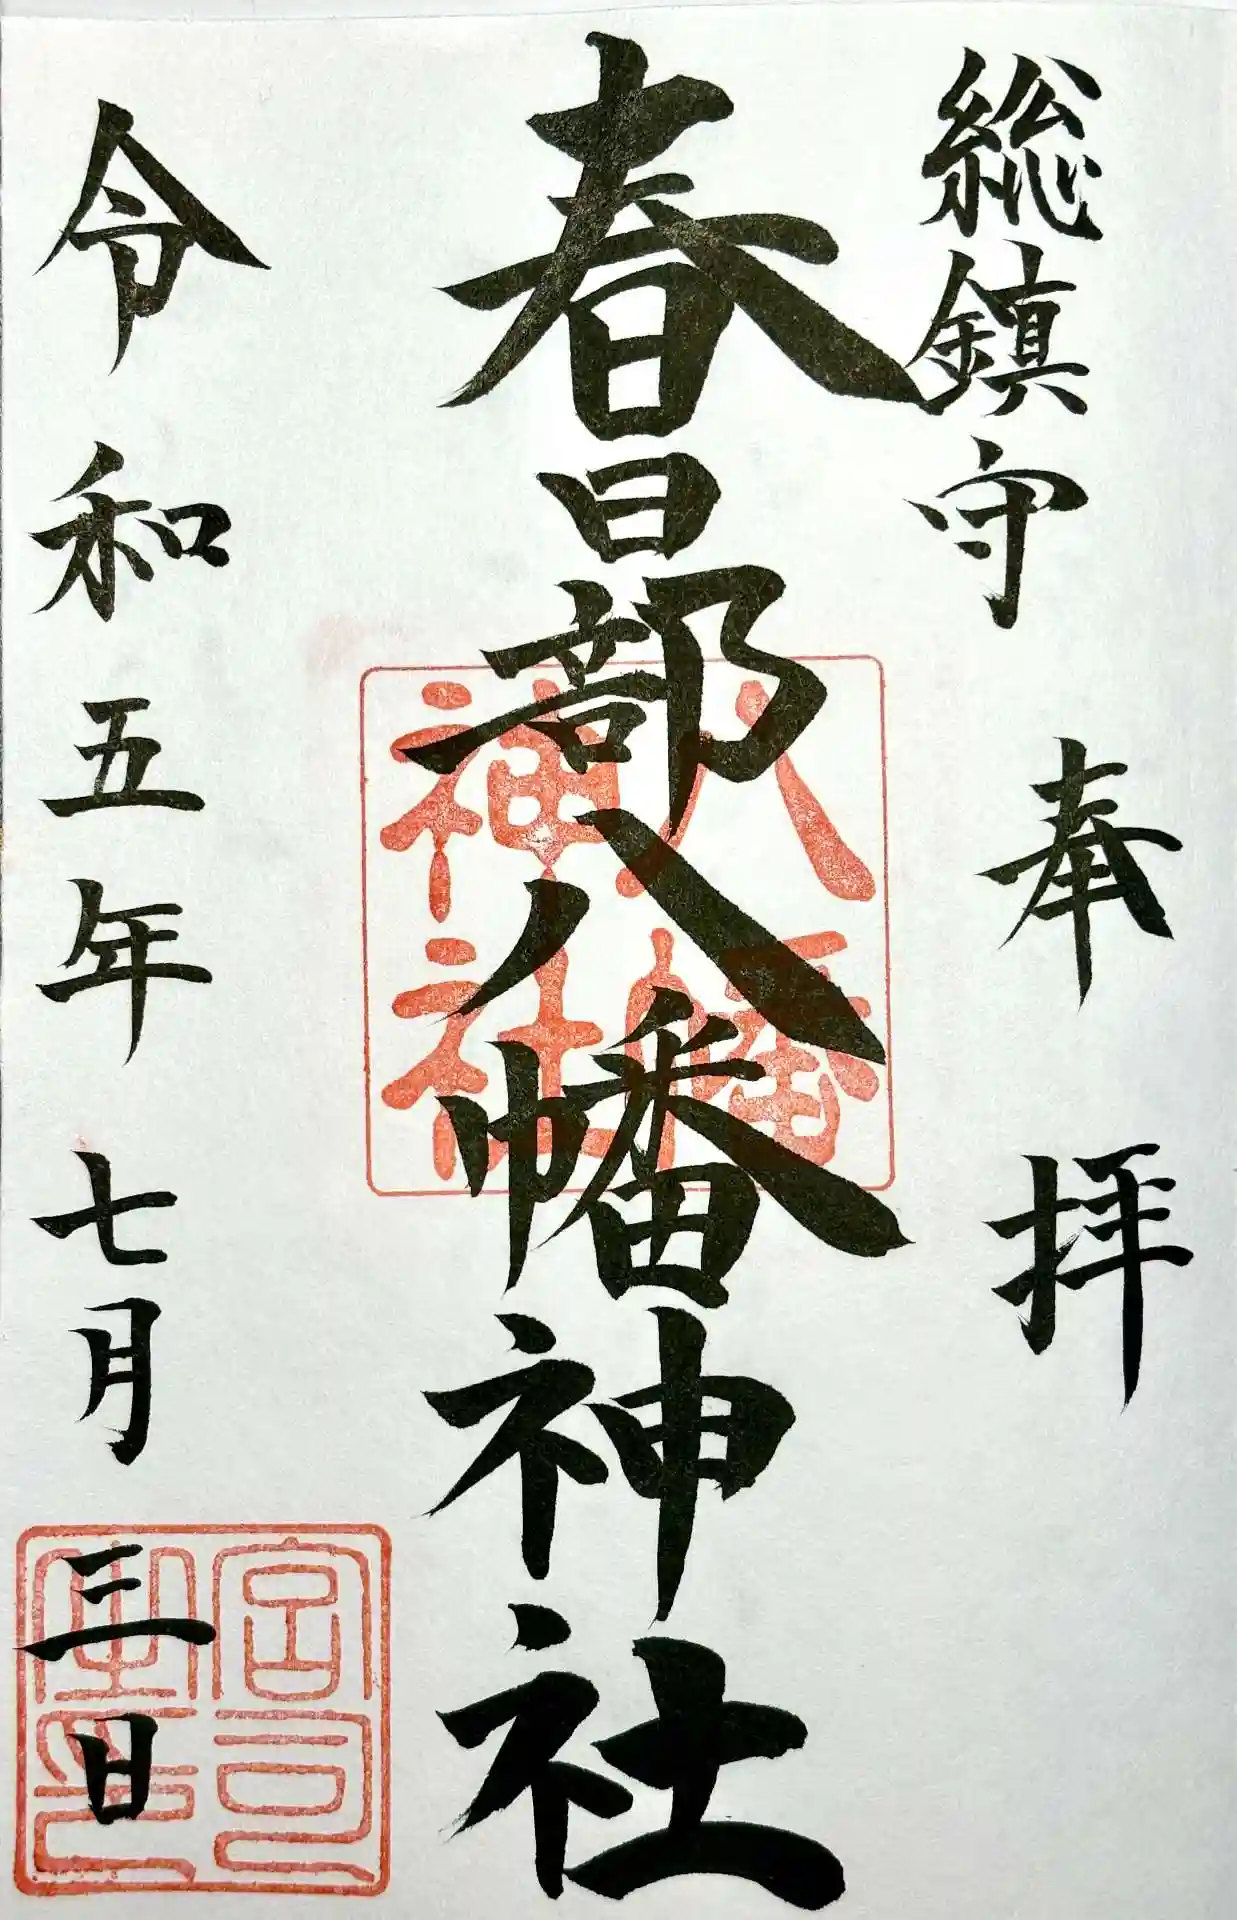 総鎮守
奉拝
春日部八幡神社
八幡
神社
令和五年七月三日
宮司
之印